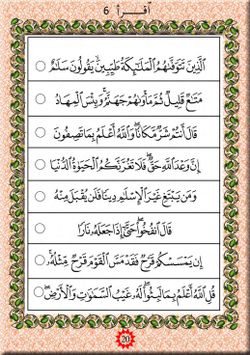 أقرأ 6
ٱلَّذِينَ تَتَوَفَّىٰهُمُ ٱلْمَلَـٰٓئِكَةُ طَيِّبِينَ ۙ يَقُولُونَ سَلَـٰمٌ
مَتَـٰعٌ قَلِيلٌ ثُمَّ مَأْوَىٰهُمْ جَهَنَّمُ ۚ وَبِئْسَ ٱلْمِهَادُ
قَالَ أَنتُمْ شَرٌّ مَّكَانًا ۖ وَٱللَّهُ أَعْلَمُ بِمَا تَصِفُونَ
إِنَّ وَعْدَ ٱللَّهِ حَقٌّ ۖ فَلَا تَغُرَّنَّكُمُ ٱلْحَيَوٰةُ ٱلدُّنْيَا
وَمَن يَبْتَغِ غَيْرَ ٱلْإِسْلَـٰمِ دِينًا فَلَن يُقْبَلَ مِنْهُ
قَالَ ٱنفُخُوا۟ ۖ حَتَّىٰٓ إِذَا جَعَلَهُۥ نَارًا
إِن يَمْسَسْكُمْ قَرْحٌ فَقَدْ مَسَّ ٱلْقَوْمَ قَرْحٌ مِّثْلُهُۥ ۚ
قُلِ ٱللَّهُ أَعْلَمُ بِمَا لَبِثُوا۟ ۖ لَهُۥ غَيْبُ ٱلسَّمَـٰوَٰتِ وَٱلْأَرْضِ ۖ
20